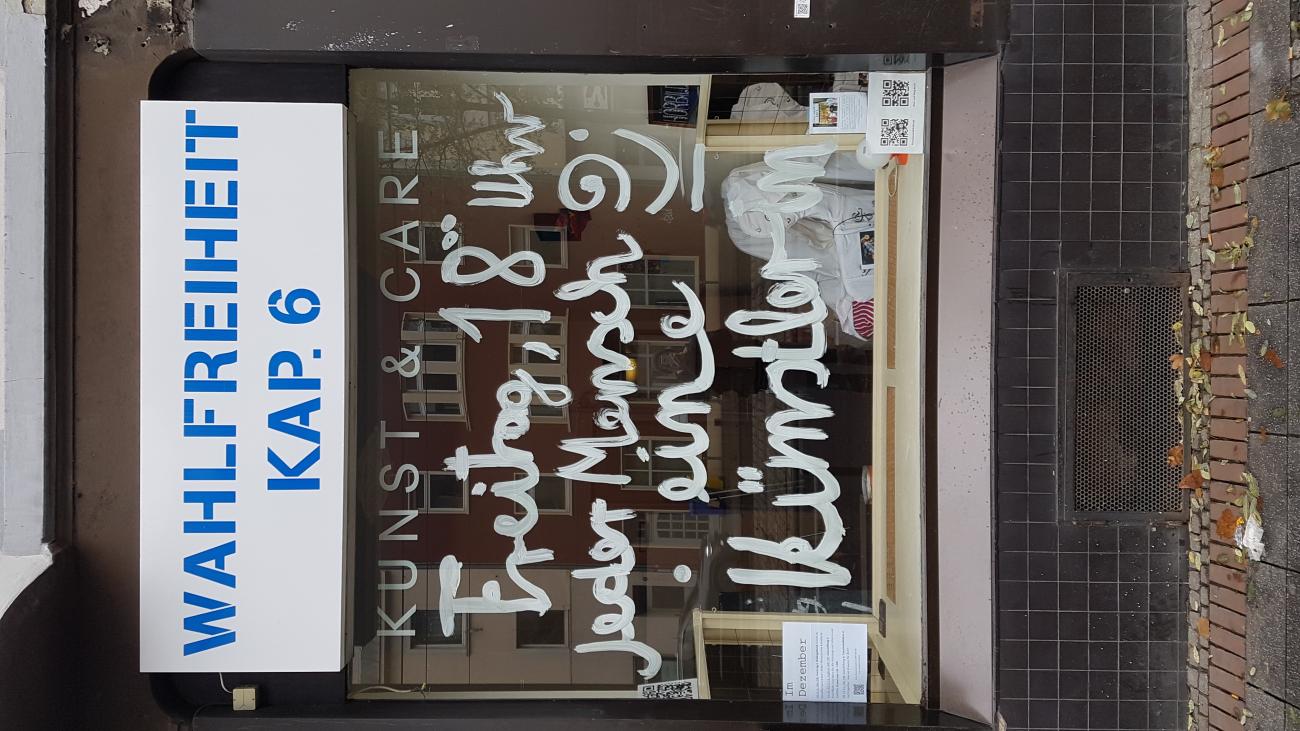 WAHLFREIHEIT
KAP. 6
KUNST & CARE
Freitag, 18 Uhr
Jeder Mensch
eine
Künstler*in
Im
Dezember